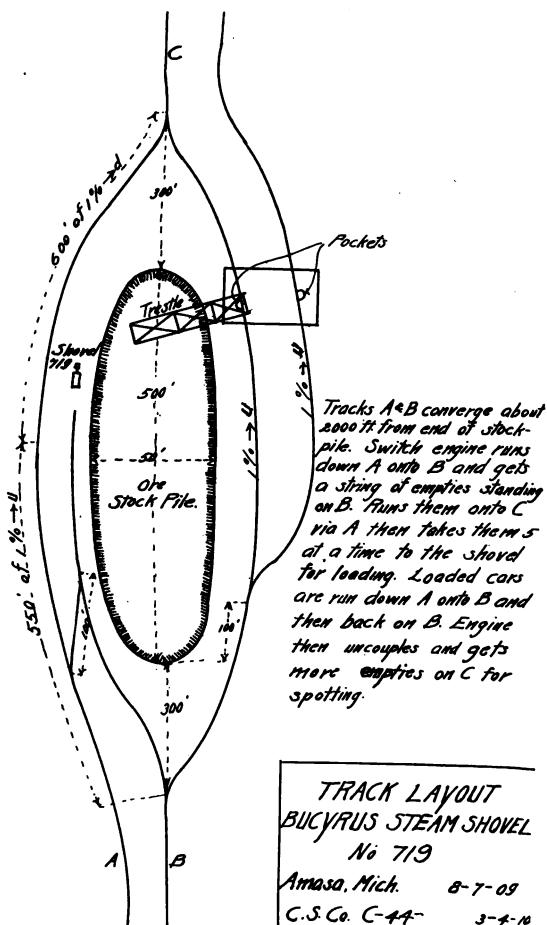 C
600' of 1% → d
300'
Pockets
Trestle
Shovel
719
500'
1% → u
1% → u
50'
Ore
Stock Pile.
550' of 1% → u
100'
100'
300'
Tracks A & B converge about
2000 ft. from end of stock-
pile. Switch engine runs
down A onto B and gets
a string of empties standing
on B. Runs them onto C
via A then takes them 5
at a time to the shovel
for loading. Loaded cars
are run down A onto B and
then back on B. Engine
then uncouples and gets
more empties on C for
spotting.
A
B
TRACK LAYOUT
BUCYRUS STEAM SHOVEL
No 719
Amasa, Mich. 8-7-09
C.S.Co. C-44- 3-4-10